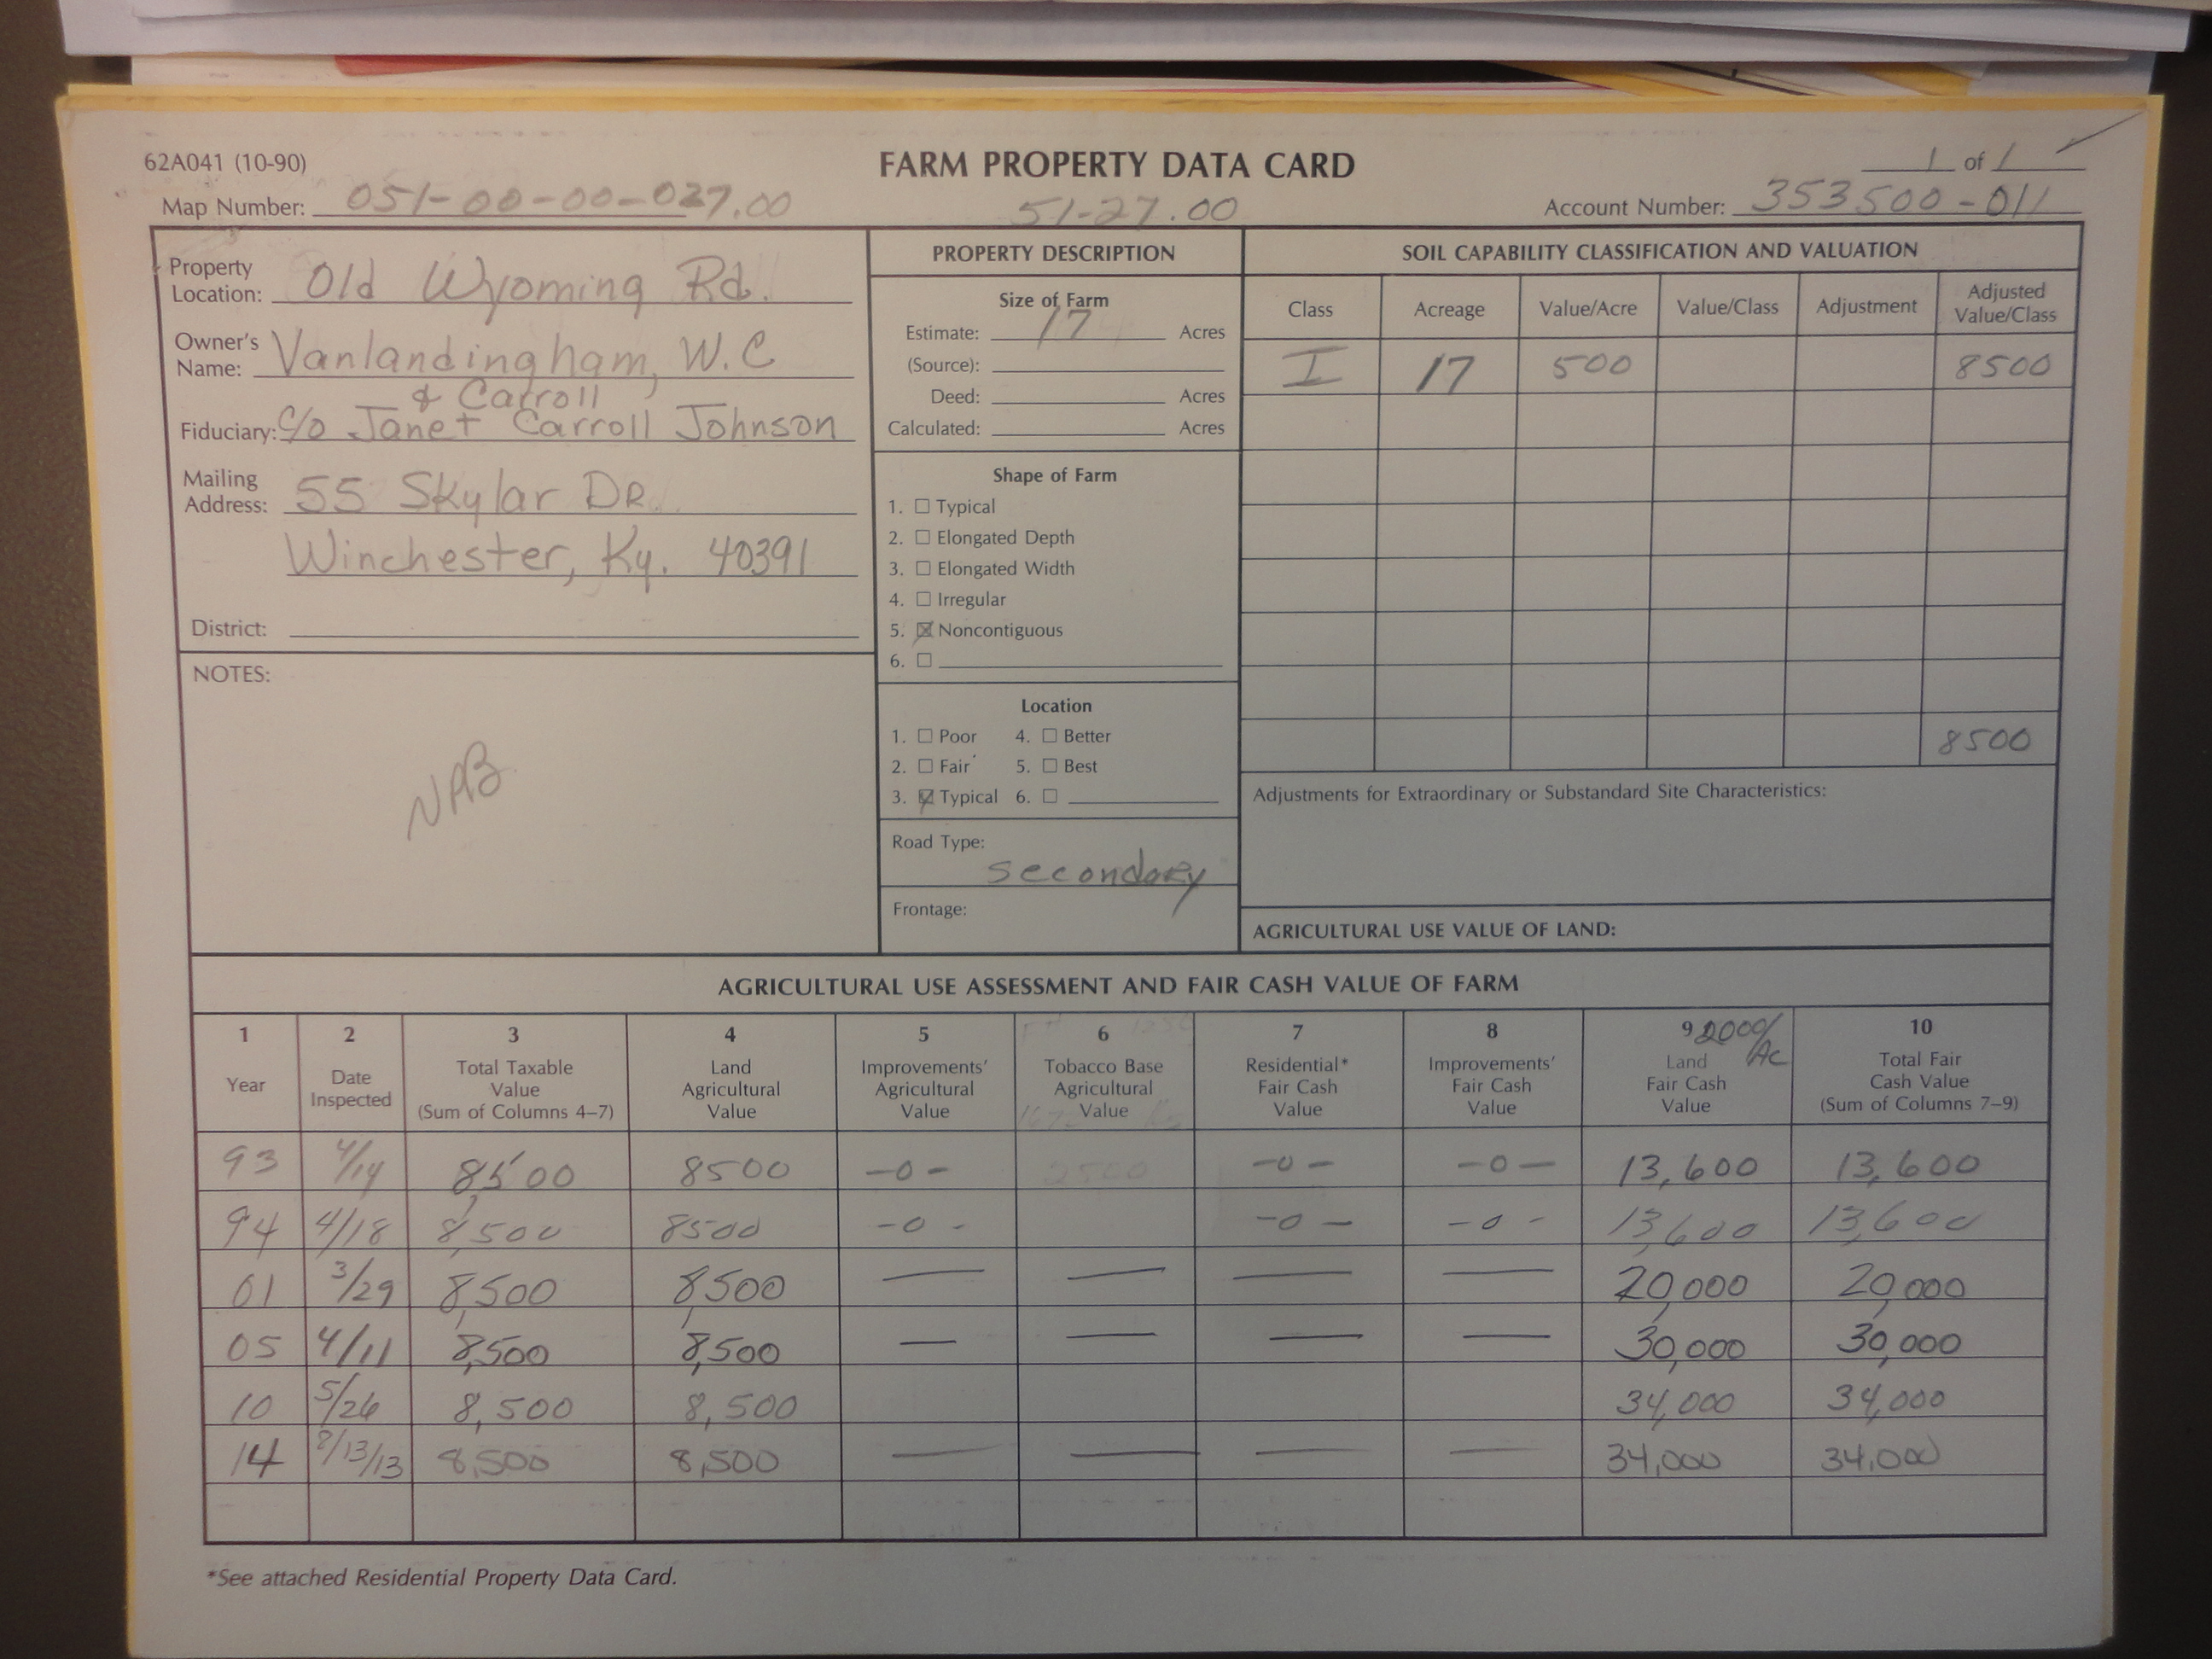 62A041 (10-90)
FARM PROPERTY DATA CARD
1 of 1
Map Number: 051-00-00-027.00
51-27.00
Account Number: 353500-011
Property Location: Old Wyoming Rd.
Owner's Name: Vanlandingham, W.C
& Carroll
Fiduciary: c/o Janet Carroll Johnson
Mailing Address: 55 Skylar DR.
Winchester, Ky. 40391
District:
NOTES:
NAB
PROPERTY DESCRIPTION
Size of Farm
Estimate: 17 Acres
(Source):
Deed: Acres
Calculated: Acres
Shape of Farm
1. ☐ Typical
2. ☐ Elongated Depth
3. ☐ Elongated Width
4. ☐ Irregular
5. ☒ Noncontiguous
6. ☐
Location
1. ☐ Poor 4. ☐ Better
2. ☐ Fair 5. ☐ Best
3. ☒ Typical 6. ☐
Road Type:
secondary
Frontage:
SOIL CAPABILITY CLASSIFICATION AND VALUATION
Class Acreage Value/Acre Value/Class Adjustment Adjusted Value/Class
I 17 500 8500
8500
Adjustments for Extraordinary or Substandard Site Characteristics:
AGRICULTURAL USE VALUE OF LAND:
AGRICULTURAL USE ASSESSMENT AND FAIR CASH VALUE OF FARM
1 Year
2 Date Inspected
3 Total Taxable Value (Sum of Columns 4–7)
4 Land Agricultural Value
5 Improvements' Agricultural Value
6 Tobacco Base Agricultural Value
7 Residential* Fair Cash Value
8 Improvements' Fair Cash Value
9 2000/Ac Land Fair Cash Value
10 Total Fair Cash Value (Sum of Columns 7–9)
93 4/14 8500 8500 -0- 2500 -0- -0- 13,600 13,600
94 4/18 8,500 8500 -0- -0- -0- 13,600 13,600
01 3/29 8,500 8,500 — — — — 20,000 20,000
05 4/11 8,500 8,500 — — — — 30,000 30,000
10 5/26 8,500 8,500 34,000 34,000
14 8/13/13 8,500 8,500 — — — — 34,000 34,000
*See attached Residential Property Data Card.